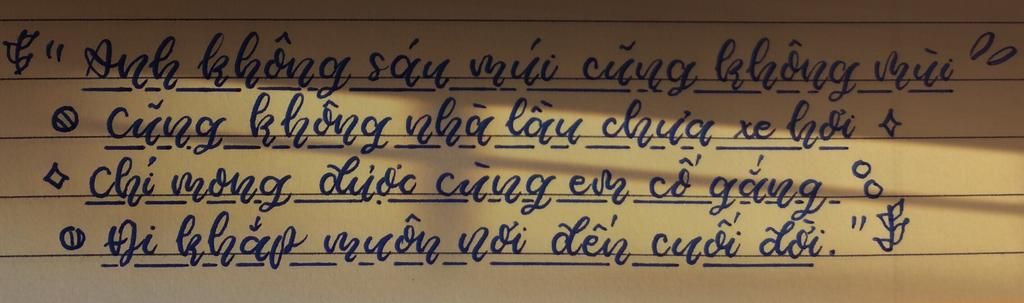 "Anh không sáu múi cũng không mùi
Cũng không nhà lầu chưa xe hơi
Chỉ mong được cùng em cố gắng
Đi khắp muôn nơi đến cuối đời."